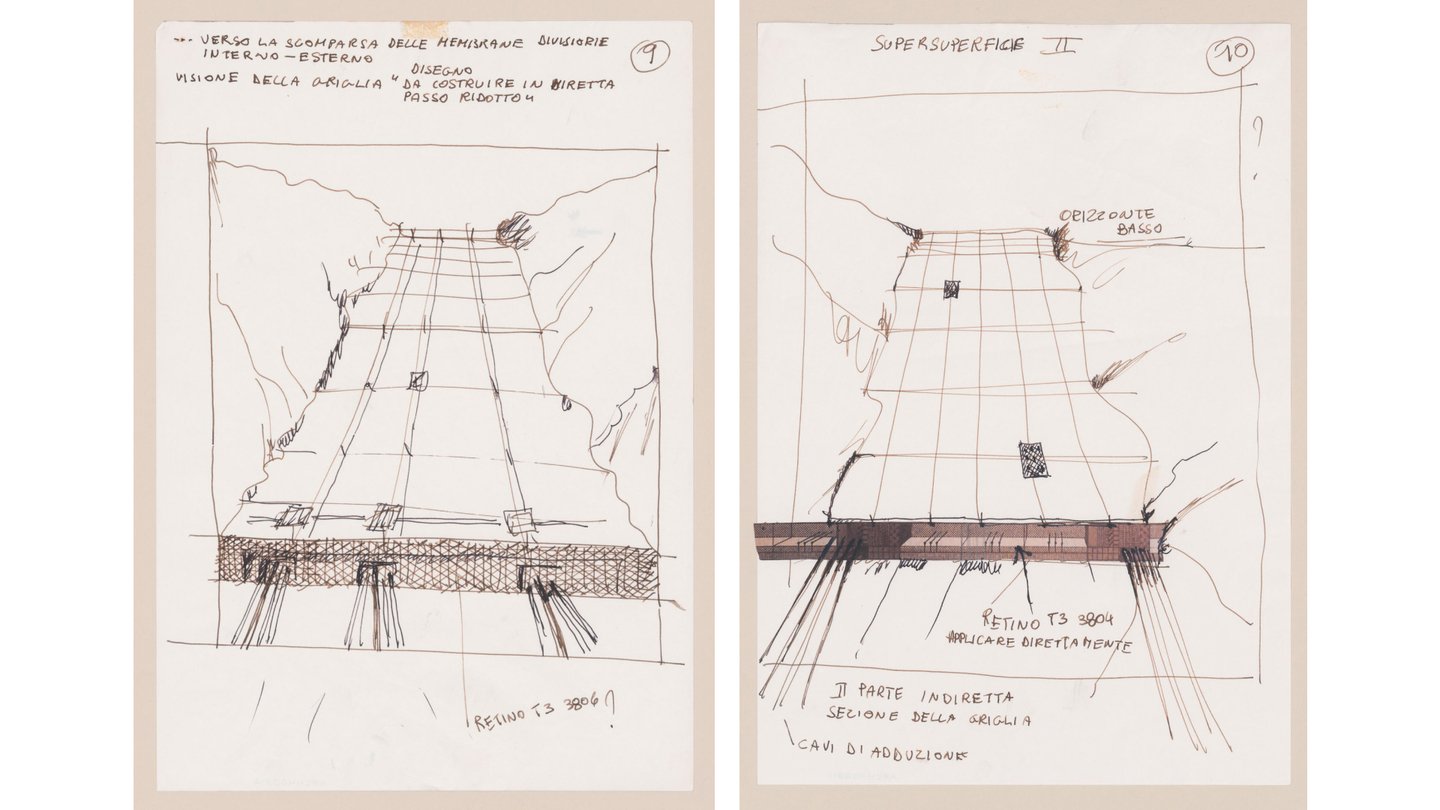 → VERSO LA SCOMPARSA DELLE MEMBRANE DIVISORIE
INTERNO-ESTERNO
9
DISEGNO
VISIONE DELLA GRIGLIA " DA COSTRUIRE IN DIRETTA
PASSO RIDOTTO "
RETINO T3 3806 ?
SUPERSUPERFICIE II
10
?
ORIZZONTE
BASSO
RETINO T3 3804
APPLICARE DIRETTAMENTE
II PARTE INDIRETTA
SEZIONE DELLA GRIGLIA
CAVI DI ADDUZIONE